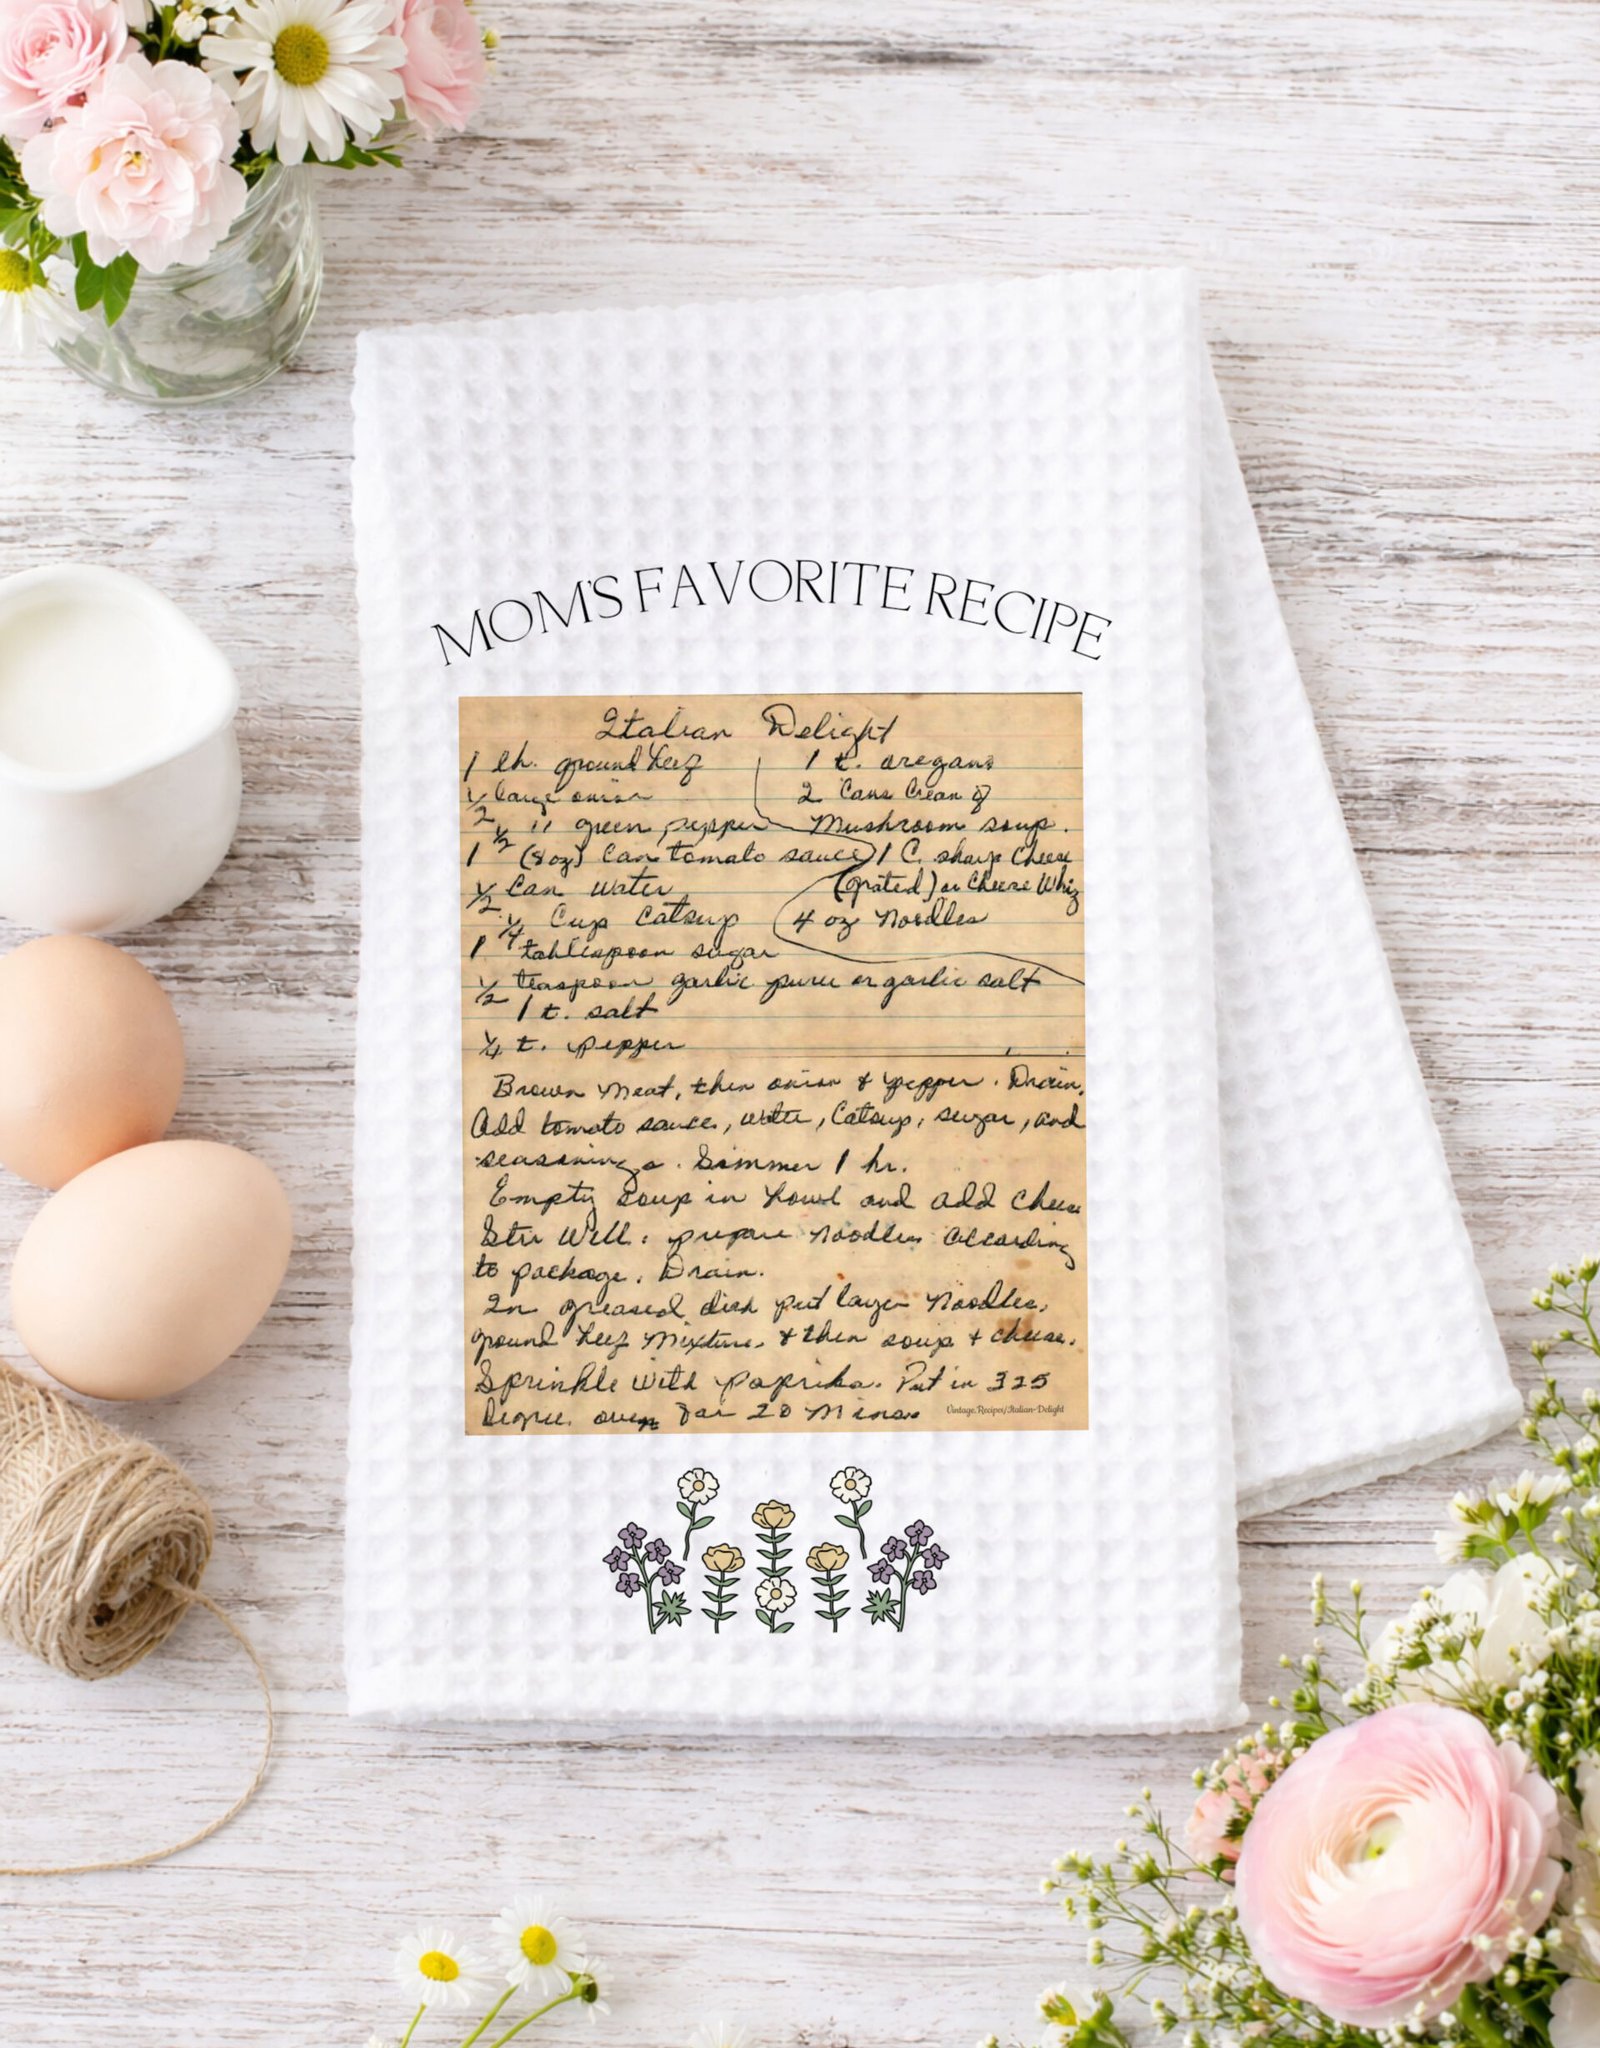 MOM'S FAVORITE RECIPE
Italian Delight
1 lb. ground beef
1/2 large onion
1/2 " green pepper
1 (8oz) can tomato sauce
1/2 Can water
1/4 Cup Catsup
1 tablespoon sugar
1/2 teaspoon garlic puree or garlic salt
1 t. salt
1/4 t. pepper
1 t. oregano
2 Cans Cream of
Mushroom soup.
1 C. sharp Cheese
(grated) or Cheese Whiz
4 oz Noodles
Brown Meat, then onion & pepper. Drain.
Add tomato sauce, water, Catsup, sugar, and
seasonings. Simmer 1 hr.
Empty soup in bowl and add cheese
Stir Well. prepare Noodles according
to package. Drain.
In greased dish put layer Noodles,
ground beef Mixture, & then soup & cheese.
Sprinkle with paprika. Put in 325
Degree oven for 20 Mins.
Vintage.Recipes/Italian-Delight